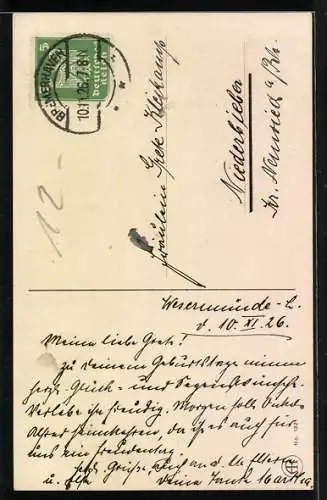 BREMERHAVEN
10.11.26. 7-8 N
5
Deutsches
Reich
12.-
Fräulein Grete Kleikamp
Niederbieber
Kr. Neuwied a/Rh.
Wesermünde-L.
d. 10. XI. 26.
Meine liebe Gret!
Zu deinem Geburtstage nimm
herzl. Glück- und Segenswünsche.
Verlebe ihn freudig. Morgen soll Onkel
Alfred heimkehren, da ist es auch für
uns ein Freudentag.
Herzl. Grüße, auch and. l. Eltern
u. Else deine Tante Martha
No. 182